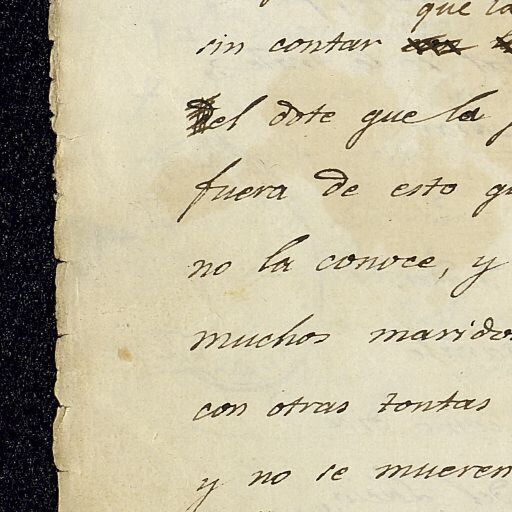 que la
sin contar
del dote que la
fuera de esto
no la conoce, y
muchos maridos
con otras tontas
y no se mueren